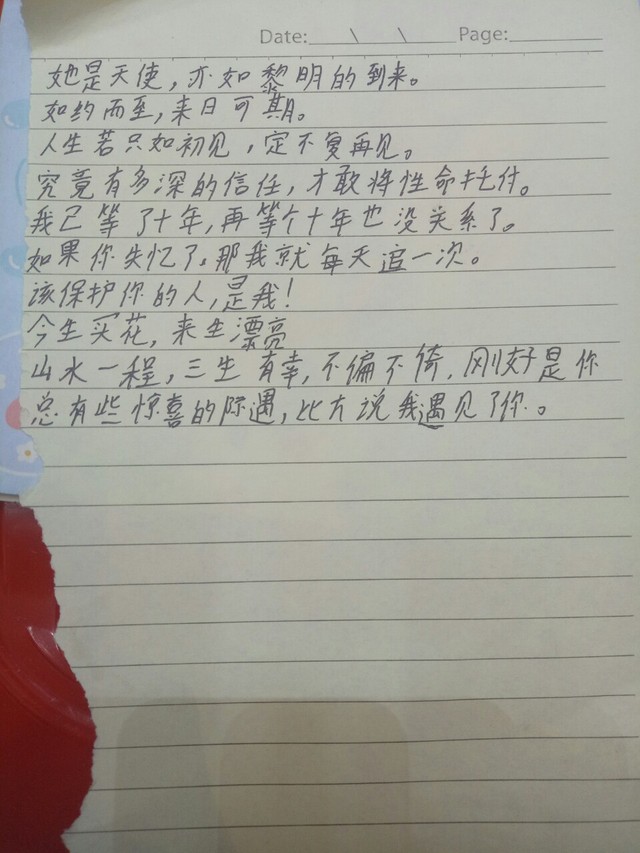 Date:____\____\____Page:________
她是天使，亦如黎明的到来。
如约而至，来日可期。
人生若只如初见，定不复再见。
究竟有多深的信任，才敢将性命托付。
我已等了十年，再等个十年也没关系了。
如果你失忆了，那我就每天追一次。
该保护你的人，是我！
今生买花，来生漂亮
山水一程，三生有幸，不偏不倚，刚好是你
总有些惊喜的际遇，比方说我遇见了你。